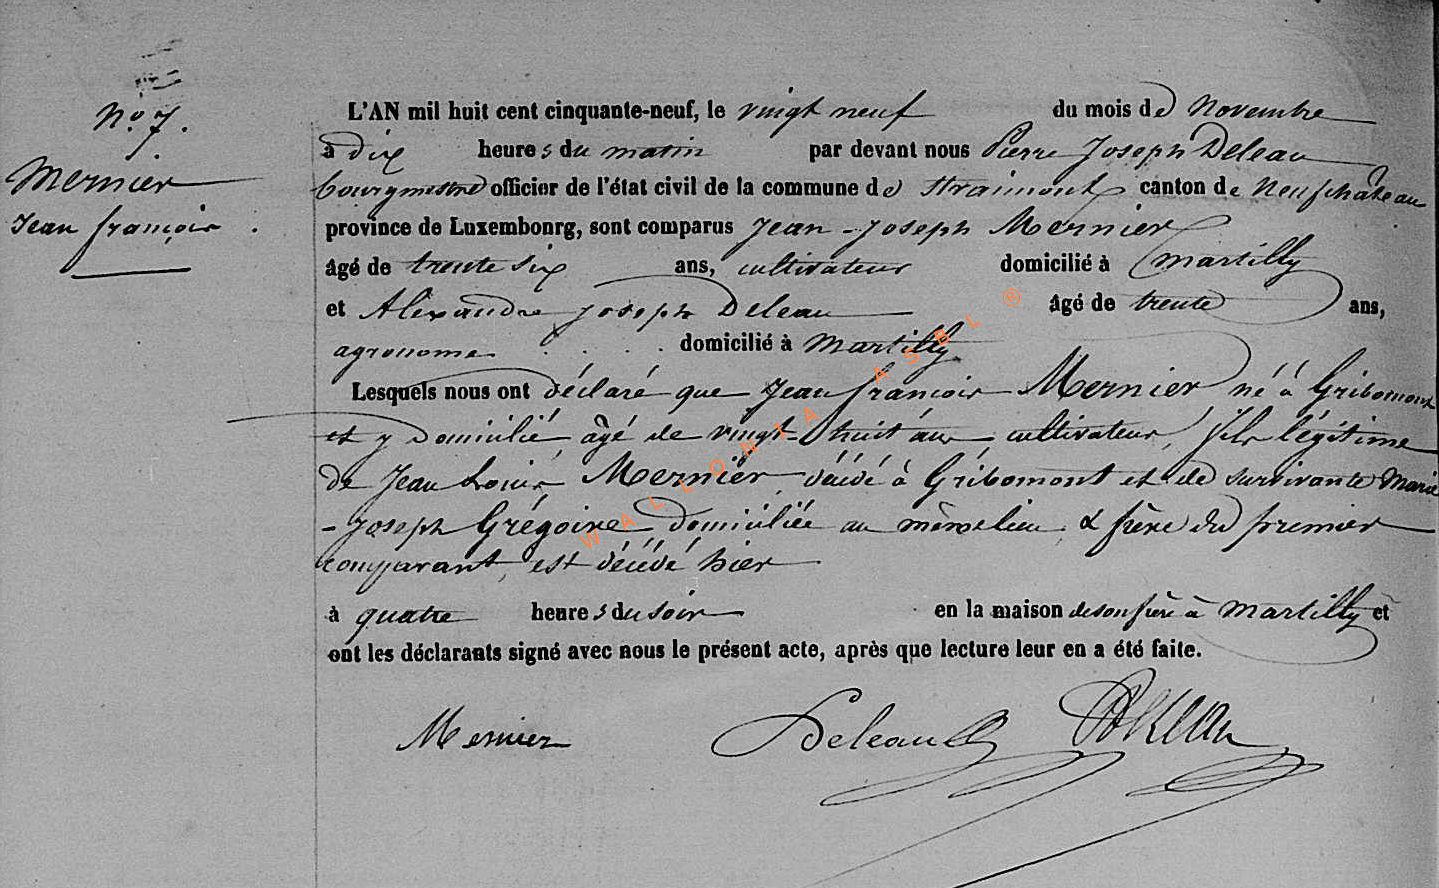 N.º 7.
Mernier
Jean françois.
L'AN mil huit cent cinquante-neuf, le vingt neuf du mois de Novembre
à dix heures du matin par devant nous Pierre Joseph Deleau
bourgmestre officier de l'état civil de la commune de Straimont canton de Neufchâteau
province de Luxembourg, sont comparus Jean-Joseph Mernier
âgé de trente six ans, cultivateur domicilié à Martilly
et Alexandre Joseph Deleau âgé de trente ans,
agronome domicilié à Martilly
Lesquels nous ont déclaré que Jean françois Mernier né à Gribomont
et y domicilié âgé de vingt-huit ans cultivateur, fils légitime
de Jean Louis Mernier, décédé à Gribomont et de survivante Marie
-Joseph Grégoire domiciliée au même lieu, & frère du premier
comparant, est décédé hier
à quatre heures du soir en la maison de son frère à Martilly et
ont les déclarants signé avec nous le présent acte, après que lecture leur en a été faite.
Mernier Deleau
WALLONIA ASBL ®